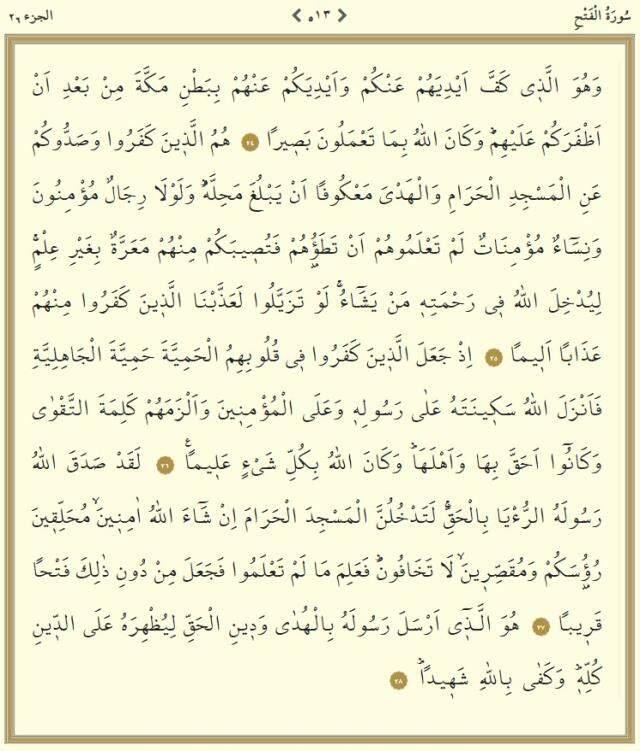 سُورَةُ الْفَتْحِ ٥١٣ الجزء ٢٦
وَهُوَ الَّذٖى كَفَّ اَيْدِيَهُمْ عَنْكُمْ وَاَيْدِيَكُمْ عَنْهُمْ بِبَطْنِ مَكَّةَ مِنْ بَعْدِ اَنْ
اَظْفَرَكُمْ عَلَيْهِمْؕ وَكَانَ اللّٰهُ بِمَا تَعْمَلُونَ بَصٖيرًا ٢٤ هُمُ الَّذٖينَ كَفَرُوا وَصَدُّوكُمْ
عَنِ الْمَسْجِدِ الْحَرَامِ وَالْهَدْىَ مَعْكُوفًا اَنْ يَبْلُغَ مَحِلَّهُؕ وَلَوْلَا رِجَالٌ مُؤْمِنُونَ
وَنِسَٓاءٌ مُؤْمِنَاتٌ لَمْ تَعْلَمُوهُمْ اَنْ تَطَؤُ۫هُمْ فَتُصٖيبَكُمْ مِنْهُمْ مَعَرَّةٌ بِغَيْرِ عِلْمٍۚ
لِيُدْخِلَ اللّٰهُ فٖى رَحْمَتِهٖ مَنْ يَشَٓاءُۚ لَوْ تَزَيَّلُوا لَعَذَّبْنَا الَّذٖينَ كَفَرُوا مِنْهُمْ
عَذَابًا اَلٖيمًا ٢٥ اِذْ جَعَلَ الَّذٖينَ كَفَرُوا فٖى قُلُوبِهِمُ الْحَمِيَّةَ حَمِيَّةَ الْجَاهِلِيَّةِ
فَاَنْزَلَ اللّٰهُ سَكٖينَتَهُ عَلٰى رَسُولِهٖ وَعَلَى الْمُؤْمِنٖينَ وَاَلْزَمَهُمْ كَلِمَةَ التَّقْوٰى
وَكَانُٓوا اَحَقَّ بِهَا وَاَهْلَهَاؕ وَكَانَ اللّٰهُ بِكُلِّ شَىْءٍ عَلٖيمًا۟ ٢٦ لَقَدْ صَدَقَ اللّٰهُ
رَسُولَهُ الرُّءْيَا بِالْحَقِّۚ لَتَدْخُلُنَّ الْمَسْجِدَ الْحَرَامَ اِنْ شَٓاءَ اللّٰهُ اٰمِنٖينَۙ مُحَلِّقٖينَ
رُؤُ۫سَكُمْ وَمُقَصِّرٖينَۙ لَا تَخَافُونَؕ فَعَلِمَ مَا لَمْ تَعْلَمُوا فَجَعَلَ مِنْ دُونِ ذٰلِكَ فَتْحًا
قَرٖيبًا ٢٧ هُوَ الَّذٖٓى اَرْسَلَ رَسُولَهُ بِالْهُدٰى وَدٖينِ الْحَقِّ لِيُظْهِرَهُ عَلَى الدّٖينِ
كُلِّهٖؕ وَكَفٰى بِاللّٰهِ شَهٖيدًاؕ ٢٨